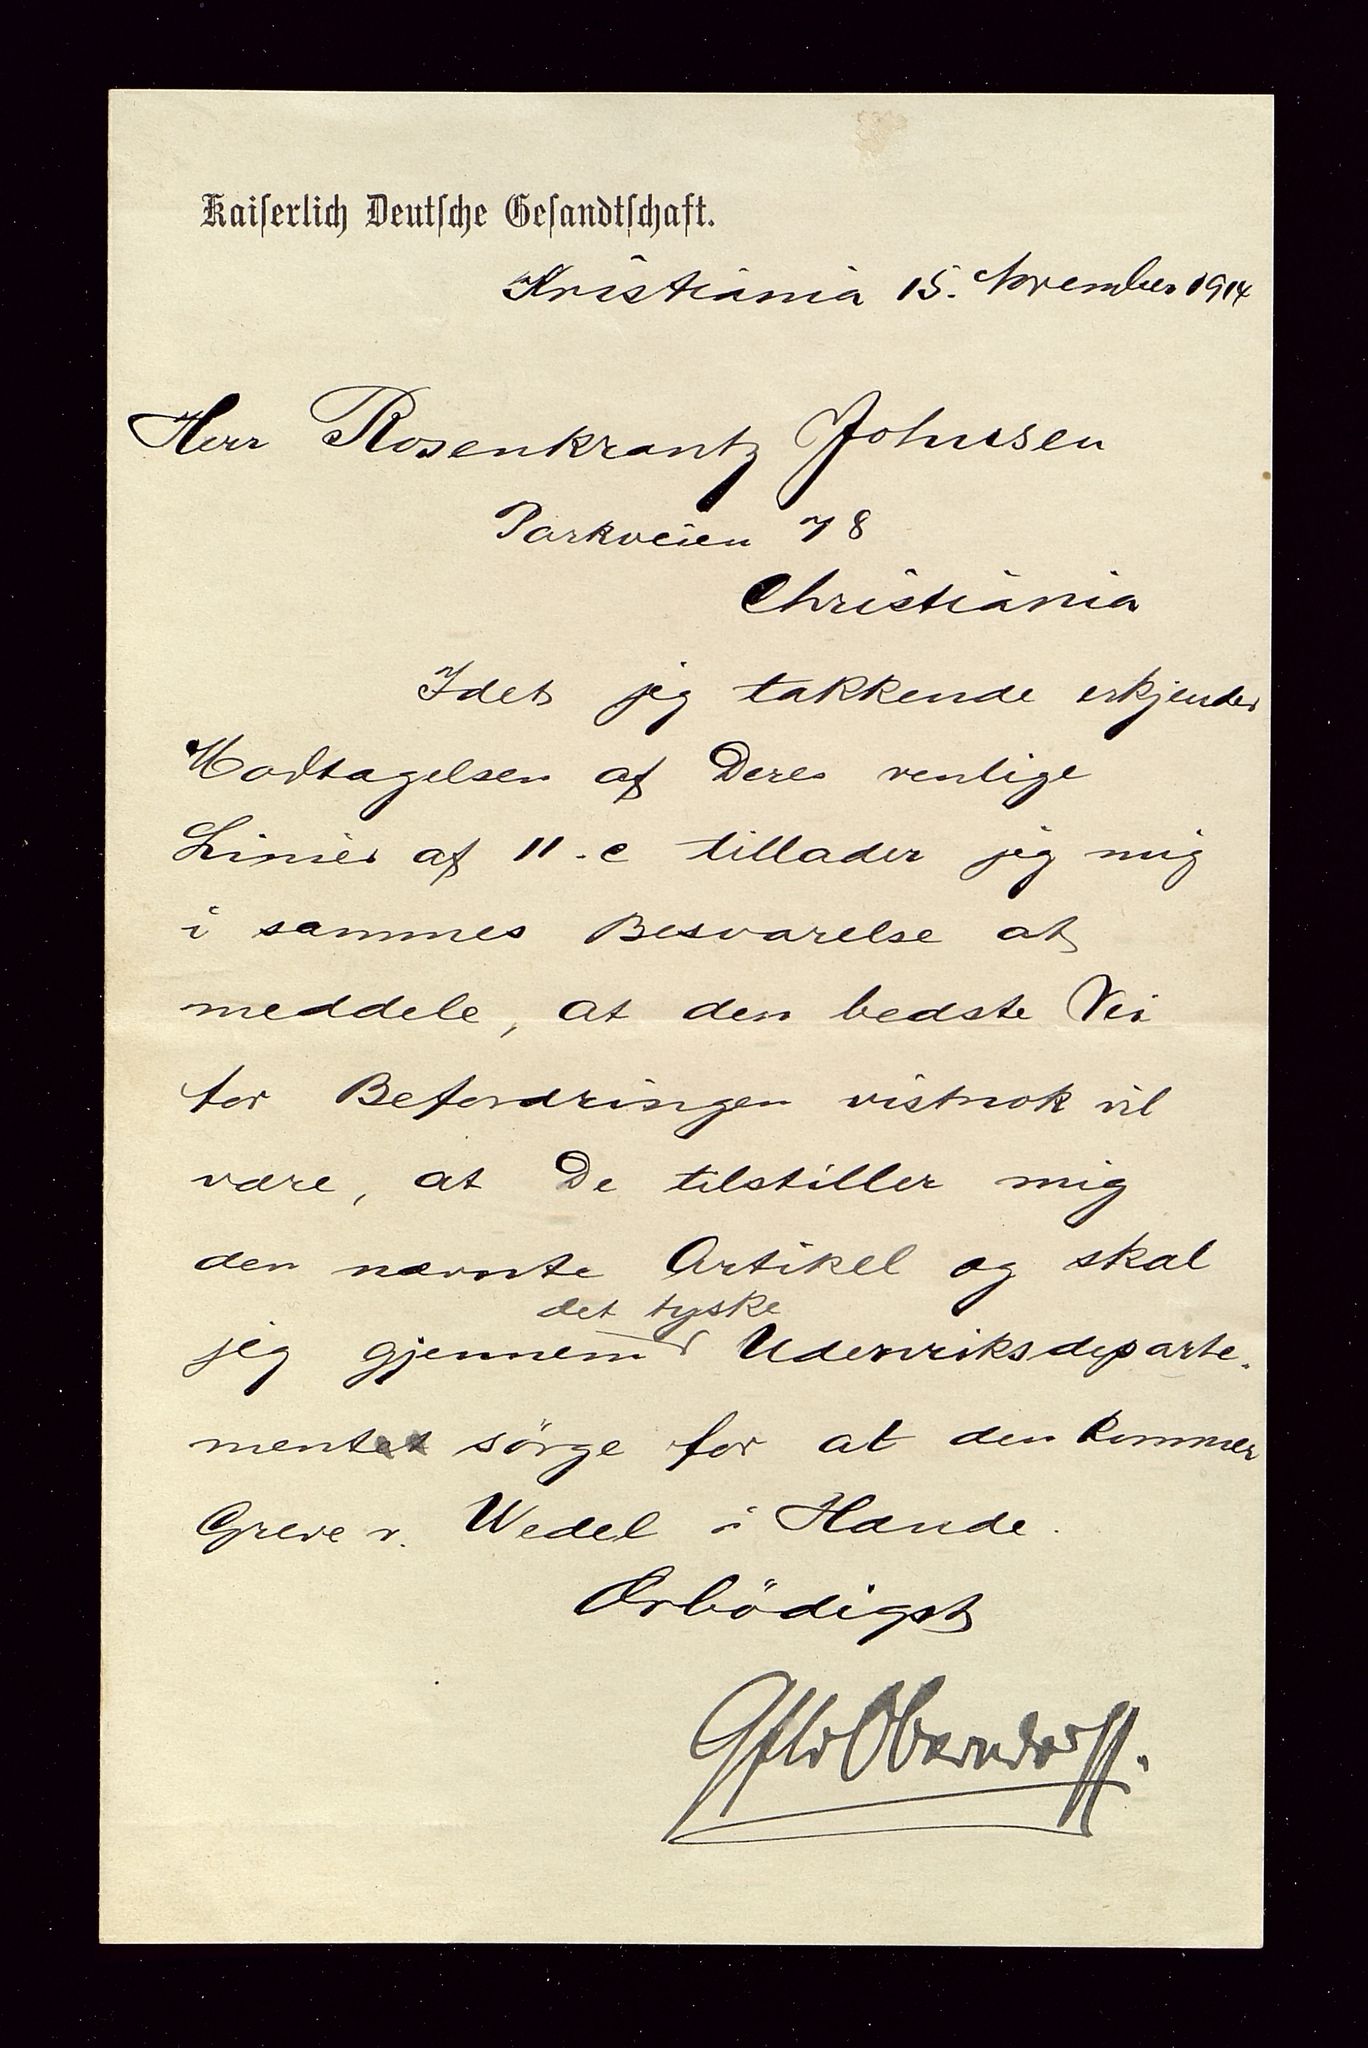 Kaiserlich Deutsche Gesandtschaft.
Kristiania 15. November 1914
Herr Rosenkrantz Johnsen
Parkveien 78
Christiania
Idet jeg takkende erkjender
Modtagelsen af Deres venlige
Linier af 11. c tillader jeg mig
i sammes Besvarelse at
meddele, at den bedste Vei
for Befordringen vistnok vil
være, at De tilstiller mig
den nævnte Artikel og skal
det tyske
jeg gjennem Udenriksdeparte-
mentet sörge for at den kommer
Greve v. Wedel i Hænde.
Ærbödigst
Oberndorff.